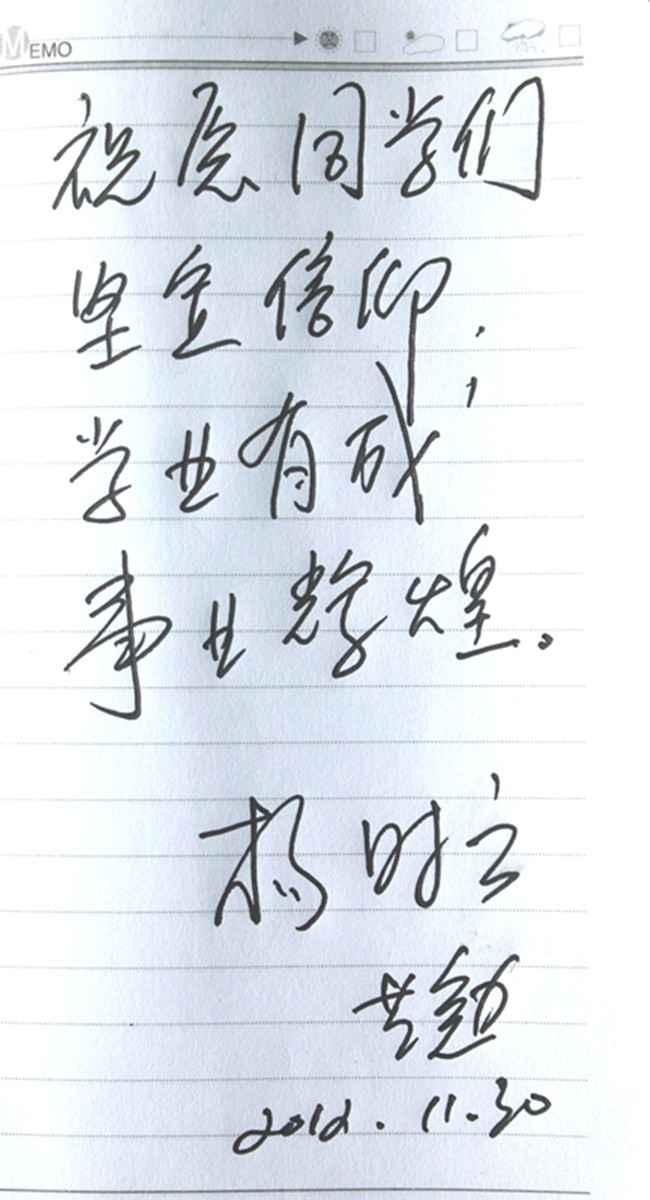 MEMO
祝愿同学们
坚定信仰；
学业有成
事业辉煌。
杨时立
共勉
2012.11.30